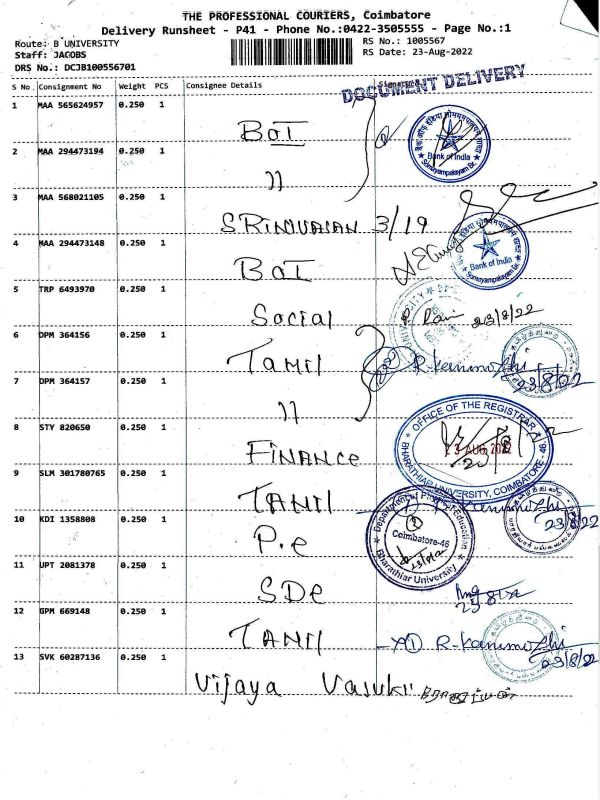 THE PROFESSIONAL COURIERS, Coimbatore
Delivery Runsheet - P41 - Phone No.:0422-3505555 - Page No.:1
Route: B UNIVERSITY
RS No.: 1005567
Staff: JACOBS
RS Date: 23-Aug-2022
DRS No.: DCJB100556701
DOCUMENT DELIVERY
S No. Consignment No Weight PCS Consignee Details
1 MAA 565624957 0.250 1
BOI
Bank of India
2 MAA 294473194 0.250 1
〃
3 MAA 568021105 0.250 1
SRINIVASAN 3/19
4 MAA 294473148 0.250 1
BOI
Bank of India
5 TRP 6493970 0.250 1
Social
23/8/22
6 DPM 364156 0.250 1
Tamil
23/8/22
7 DPM 364157 0.250 1
〃
OFFICE OF THE REGISTRAR
BHARATHIAR UNIVERSITY, COIMBATORE-46
23 AUG 2022
8 STY 820650 0.250 1
FINANCE
9 SLM 301780765 0.250 1
TAMIL
23/8/22
10 KDI 1358808 0.250 1
P.e
Department of Physical Education
Coimbatore-46
Bharathiar University
11 UPT 2081378 0.250 1
SDE
12 GPM 669148 0.250 1
TAMIL
23/8/22
13 SVK 60287136 0.250 1
Vijaya Vasuki